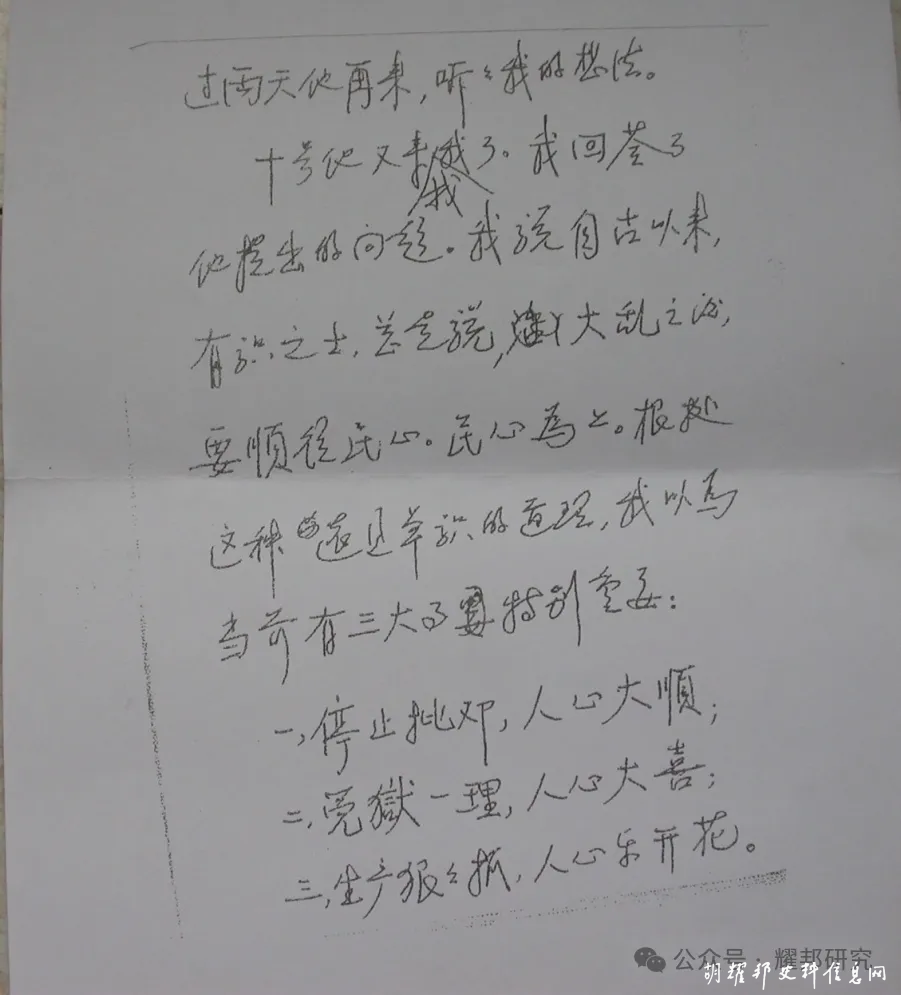 过两天他再来,听々我的想法。
十号他又来我了。我回答了
他提出的问题。我说自古以来,
有识之士,总是说,大乱之后,
要顺从民心。民心为上。根据
这种远见卓识的道理,我以为
当前有三大事特别重要:
一,停止批邓,人心大順;
二,冤獄一理,人心大喜;
三,生产狠々抓,人心乐开花。
公众号·耀邦研究
胡耀邦史料信息网